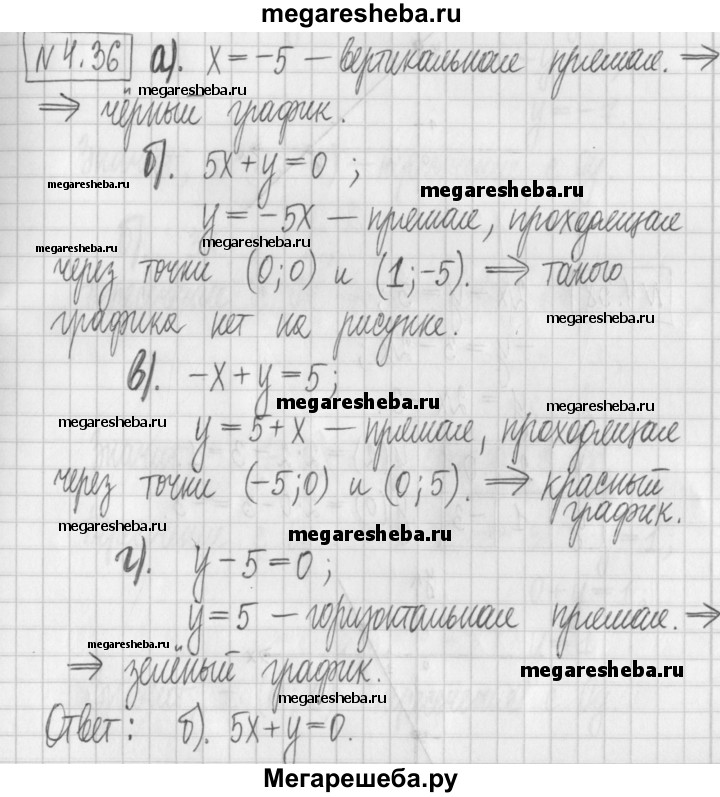 megaresheba.ru
№4.36 а). x = -5 — вертикальная прямая. ⇒
megaresheba.ru
⇒ чёрный график.
б). 5x + y = 0 ;
megaresheba.ru
megaresheba.ru
y = -5x — прямая, проходящая
megaresheba.ru
megaresheba.ru
через точки (0;0) и (1;-5). ⇒ такого
megaresheba.ru
графика нет на рисунке.
в). -x + y = 5;
megaresheba.ru
megaresheba.ru
megaresheba.ru
y = 5 + x — прямая, проходящая
через точки (-5;0) и (0;5). ⇒ красный
график.
megaresheba.ru
megaresheba.ru
г). y - 5 = 0 ;
y = 5 — горизонтальная прямая. ⇒
megaresheba.ru
⇒ зелёный график.
megaresheba.ru
megaresheba.ru
Ответ: б). 5x + y = 0.
Мегарешеба.ру